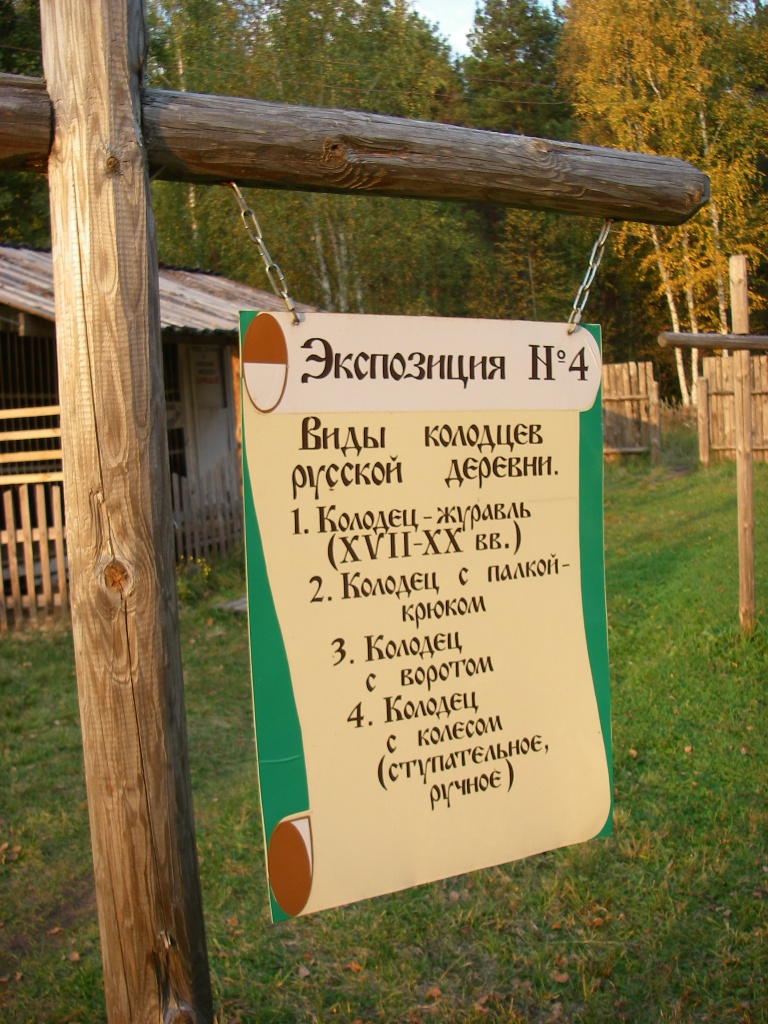 Экспозиция №4
Виды колодцев
русской деревни.
1. Колодец-журавль
(XVII-XX вв.)
2. Колодец с палкой-
крюком
3. Колодец
с воротом
4. Колодец
с колесом
(ступательное,
ручное)